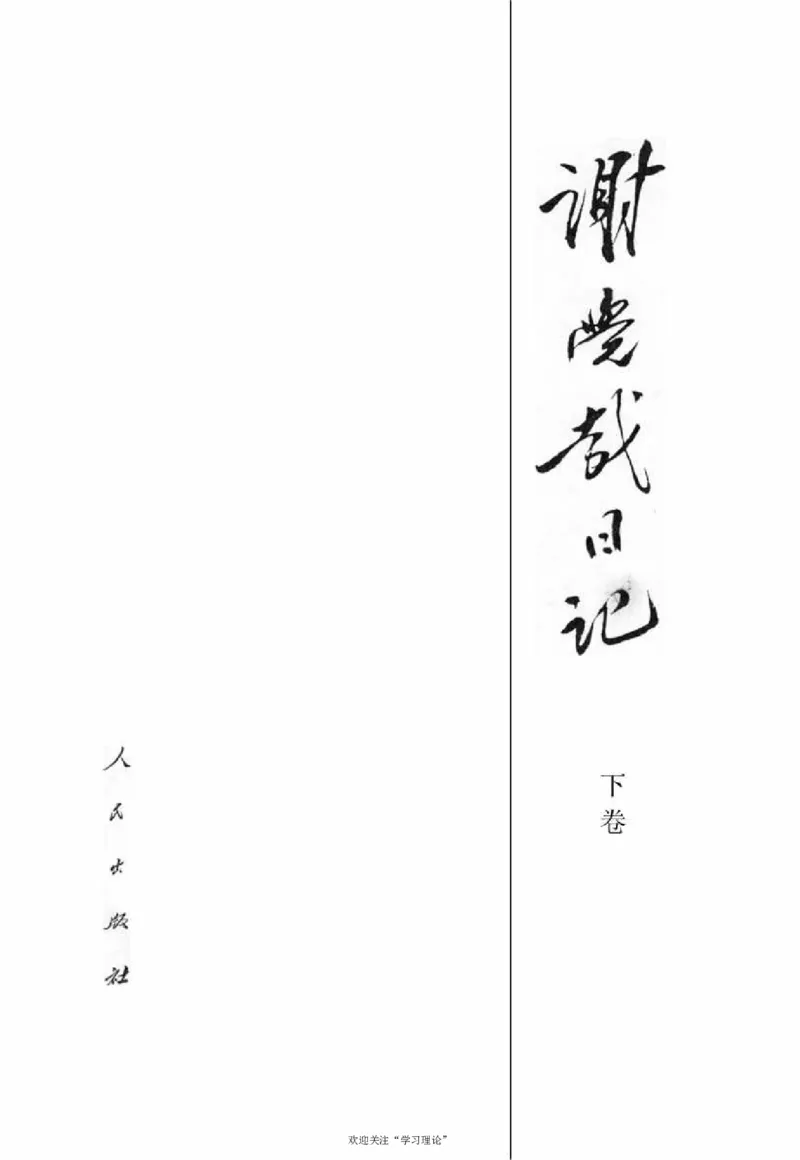 谢觉哉日记
下卷
人民出版社
欢迎关注“学习理论”